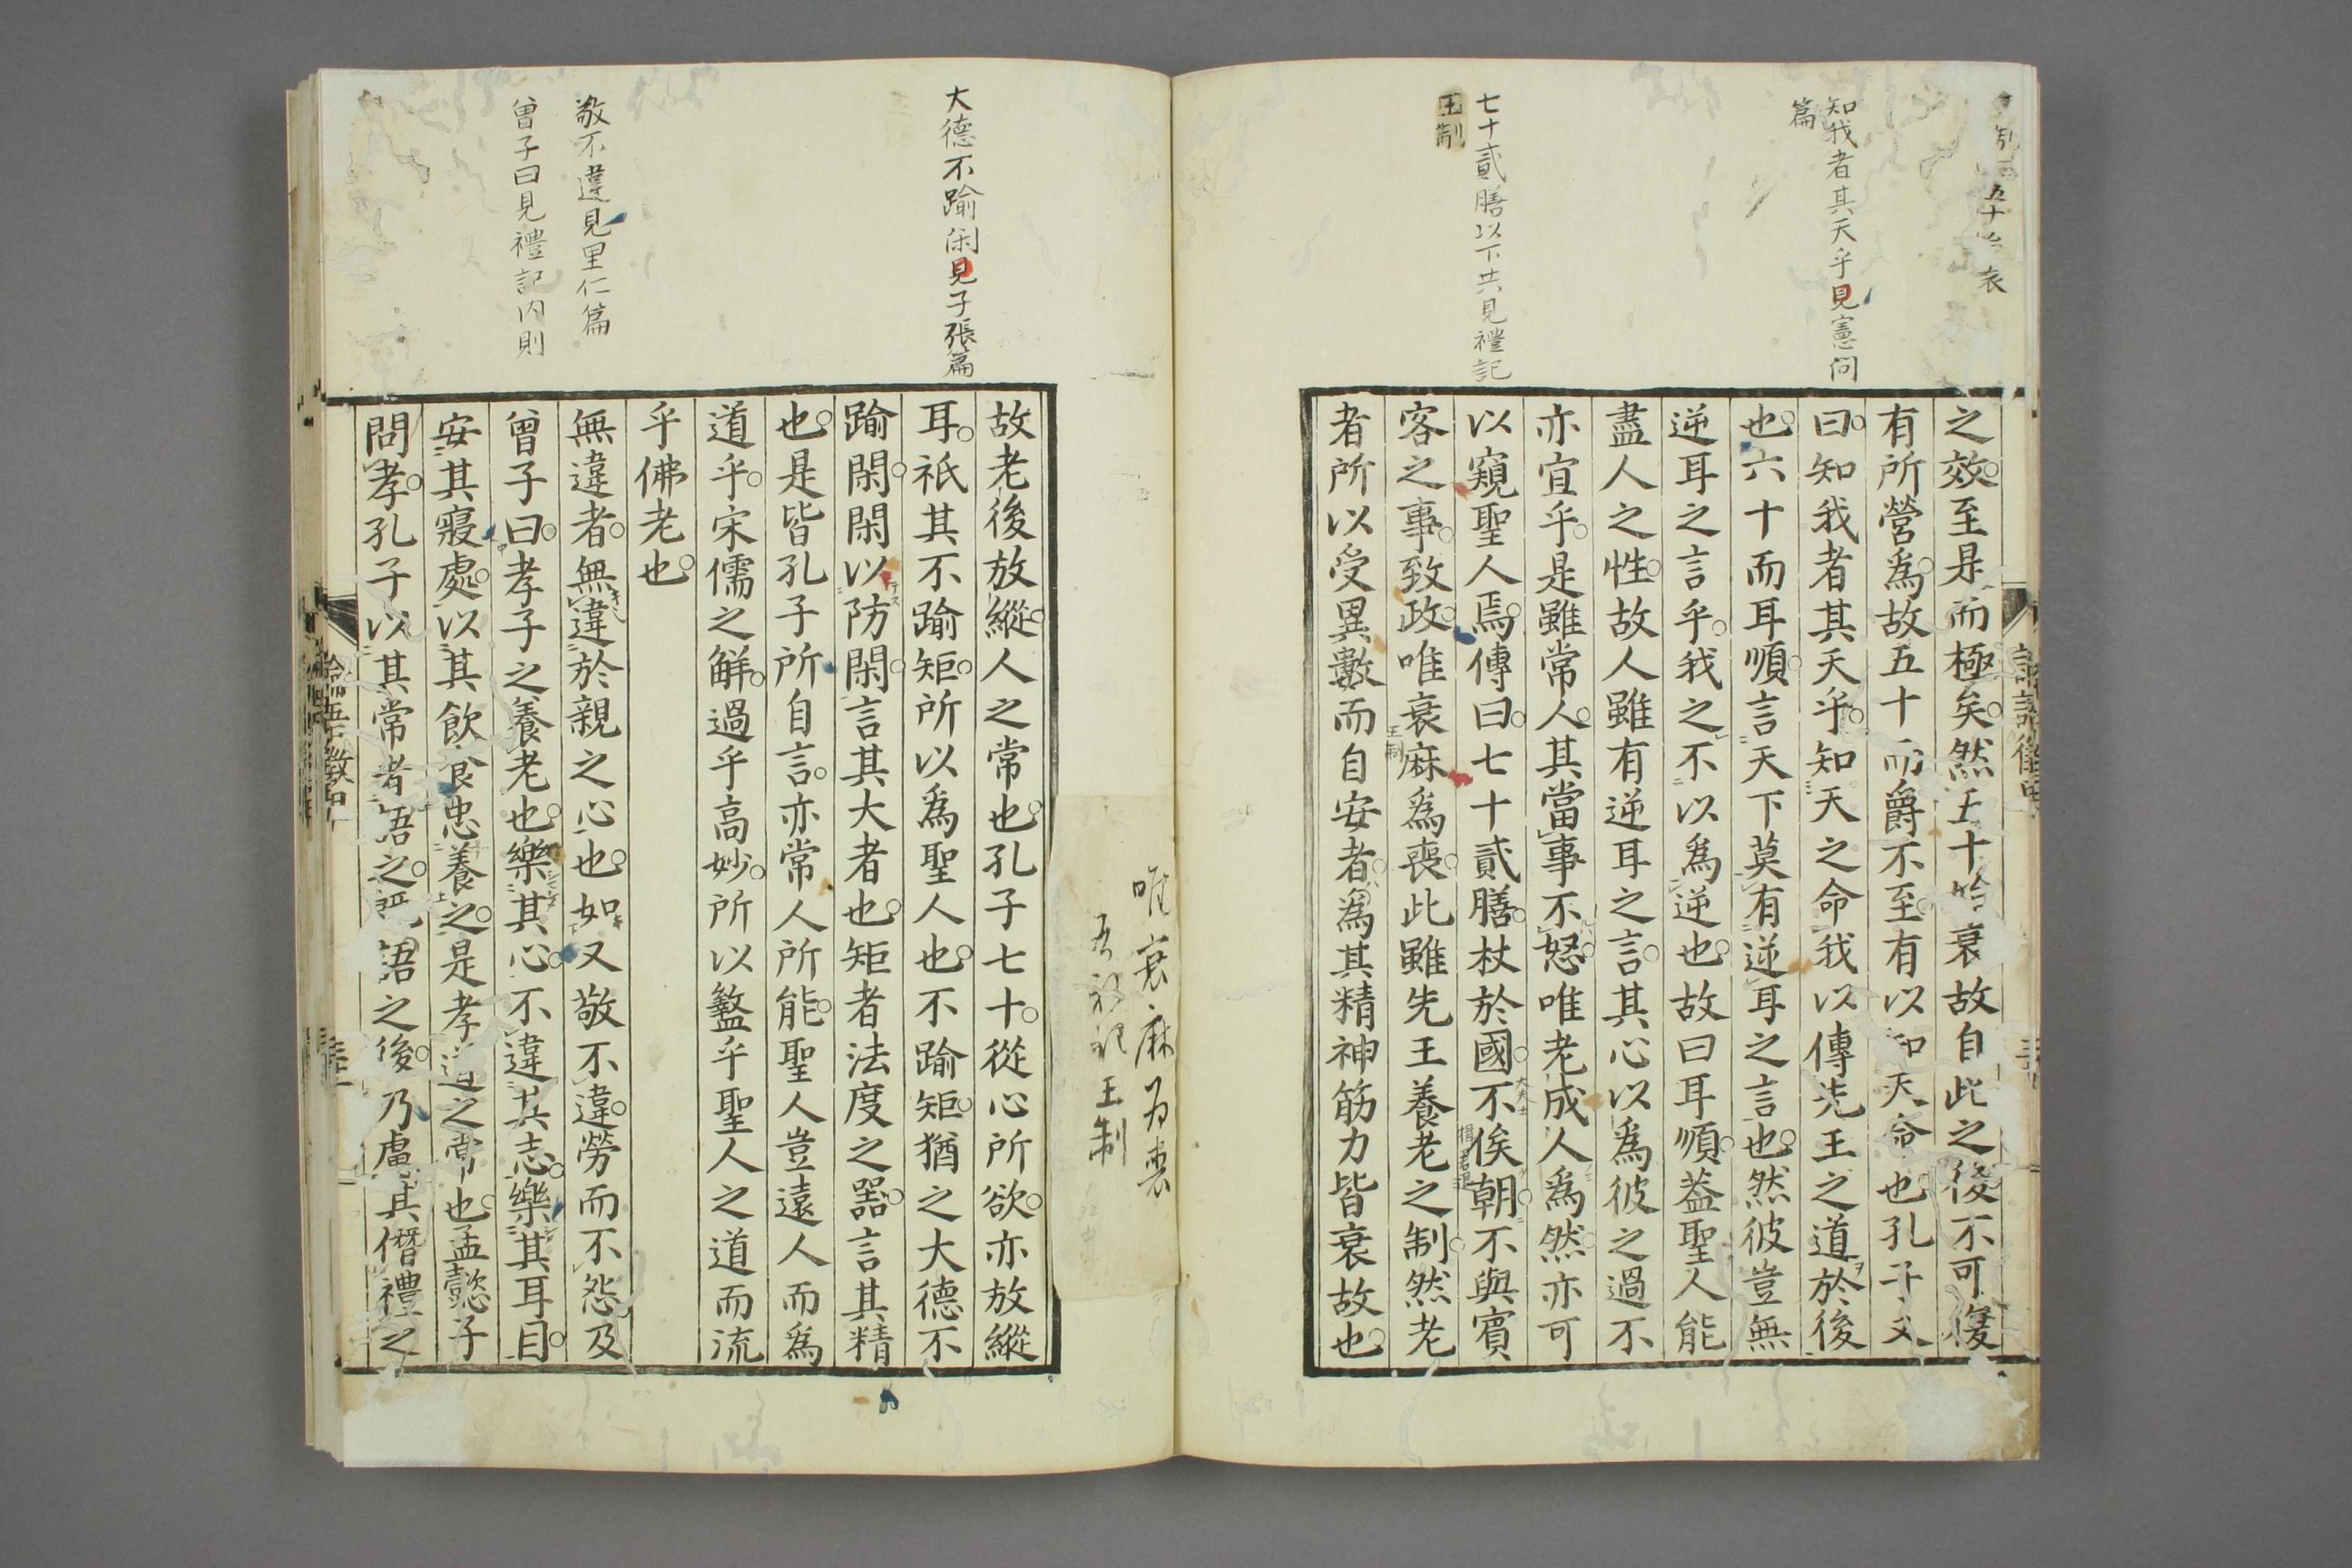 五十始衰
知我者其天乎見憲問
篇
七十貳膳以下共見禮記
王制
之效至是而極矣然五十始衰故自此之後不可復
有所營爲故五十而爵不至有以知天命也孔子又
曰知我者其天乎知天之命我以傳先王之道於後
也六十而耳順言天下莫有逆耳之言也然彼豈無
逆耳之言乎我之不以爲逆也故曰耳順蓋聖人能
盡人之性故人雖有逆耳之言其心以爲彼之過不
亦宜乎是雖常人其當事不怒唯老成人爲然亦可
以窺聖人焉傳曰七十貳膳杖於國不俟朝不與賓
客之事致政唯衰麻爲喪此雖先王養老之制然老
者所以受異數而自安者爲其精神筋力皆衰故也
唯衰麻为喪
禮記王制
大德不踰閑見子張篇
敬不違見里仁篇
曾子曰見禮記內則
故老後放縱人之常也孔子七十從心所欲亦放縱
耳祇其不踰矩所以爲聖人也不踰矩猶之大德不
踰閑閑以防閑言其大者也矩者法度之器言其精
也是皆孔子所自言亦常人所能聖人豈遠人而爲
道乎宋儒之解過乎高妙所以盭乎聖人之道而流
乎佛老也
無違者無違於親之心也如又敬不違勞而不怨及
曾子曰孝子之養老也樂其心不違其志樂其耳目
安其寢處以其飲食忠養之是孝道之常也孟懿子
問孝孔子以其常者語之既語之後乃慮其僭禮之